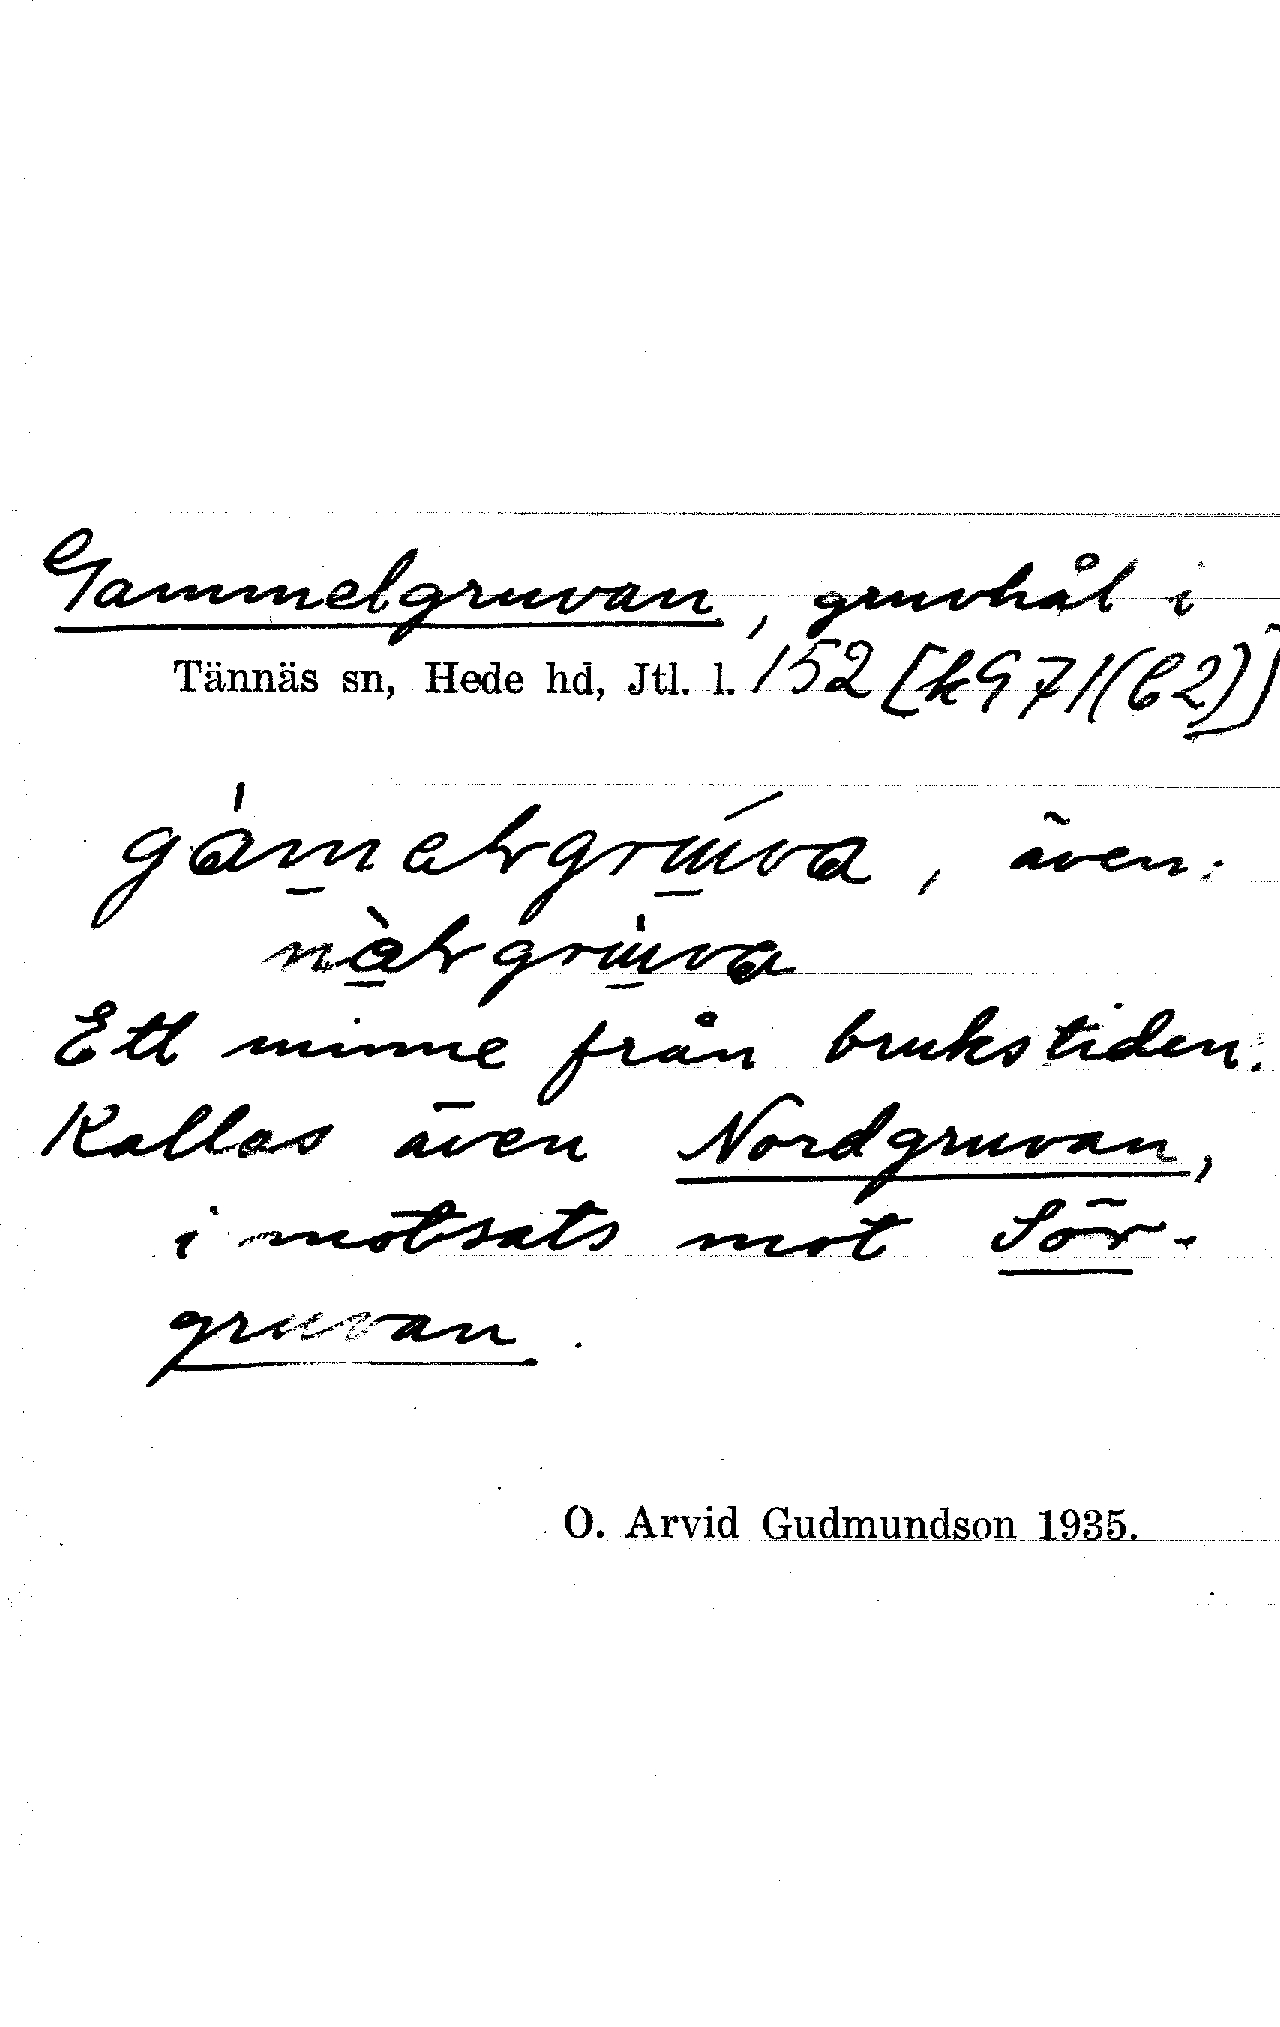 Gammelgruvan, gruvhål i
Tännäs sn, Hede hd, Jtl. l. 152 [k971(C2)]
även:
Ett minne från brukstiden.
Kallas även Nordgruvan,
i motsats mot Sör-
gruvan.
O. Arvid Gudmundson 1935.